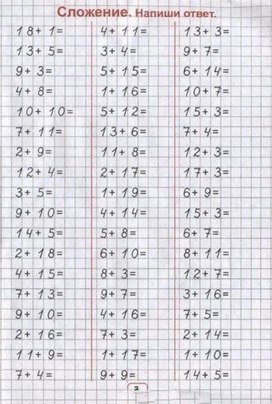 Сложение. Напиши ответ.
18+1= 4+11= 13+3=
13+5= 3+4= 9+7=
9+3= 5+15= 6+14=
4+8= 1+16= 10+7=
10+10= 5+12= 15+3=
7+11= 13+6= 7+4=
2+9= 11+8= 12+3=
12+4= 2+17= 17+3=
3+5= 1+19= 6+9=
9+10= 4+14= 15+3=
14+5= 5+8= 6+7=
2+18= 6+10= 8+11=
4+15= 8+3= 12+7=
7+13= 9+7= 3+16=
9+10= 4+16= 7+5=
2+16= 7+3= 2+14=
11+9= 1+17= 1+10=
7+4= 9+9= 14+5=
2